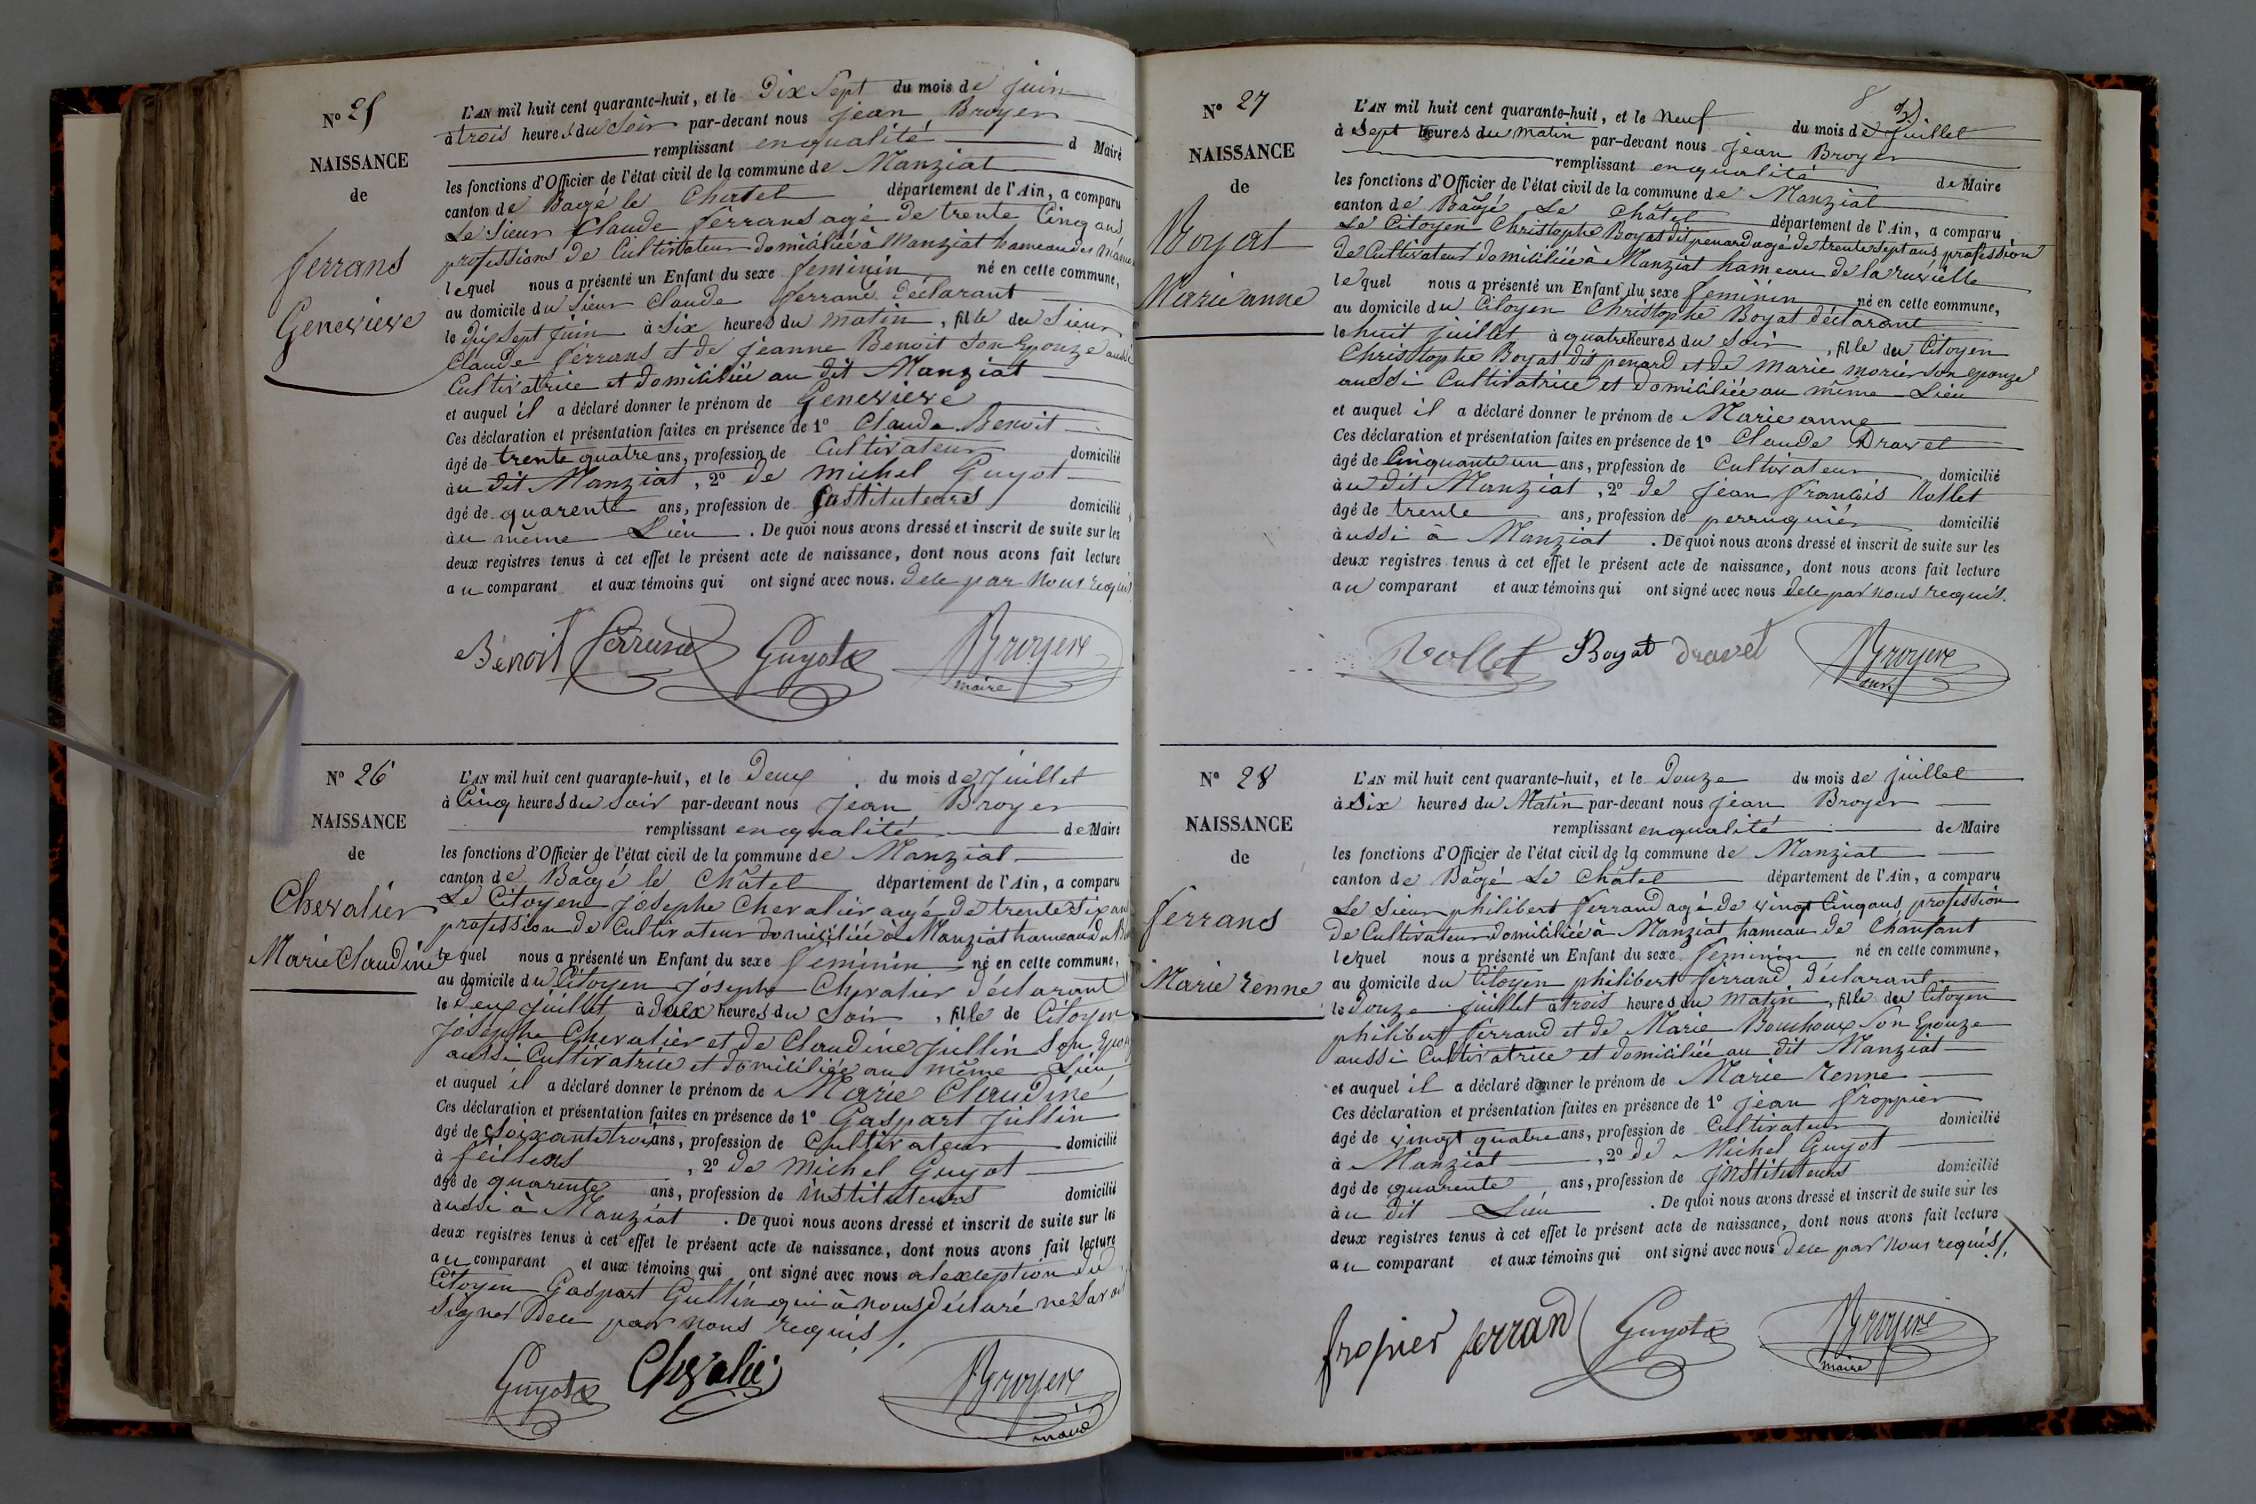 N° 25
NAISSANCE
de
ferrans
Genevieve
L'AN mil huit cent quarante-huit, et le Dix Sept du mois de juin
à trois heures du Soir par-devant nous jean Broyer
remplissant enqualité d Maire
les fonctions d'Officier de l'état civil de la commune de Manziat
canton de Bagé le Chatel département de l'Ain, a comparu
Le Sieur Claude ferrans agé de trente Cinq ans
professions de Cultivateur domiciliée à Manziat hameau des
lequel nous a présenté un Enfant du sexe feminin né en cette commune,
au domicile du Sieur Claude ferrans déclarant
le dix Sept juin à Six heures du matin, fille deu Sieur
Claude ferrans et de jeanne Benoit Son Epouze aussi
Cultivatrice et domiciliée au dit Manziat
et auquel il a déclaré donner le prénom de Genevieve
Ces déclaration et présentation faites en présence de 1° Claude Benoit
âgé de trente quatre ans, profession de Cultivateur domicilié
àu dit Manziat, 2° de michel Guyot
âgé de quarente ans, profession de Instituteurs domicilié
àu même Lieu. De quoi nous avons dressé et inscrit de suite sur les
deux registres tenus à cet effet le présent acte de naissance, dont nous avons fait lecture
au comparant et aux témoins qui ont signé avec nous. dece par Nous requis
Benoit ferrand Guyot Broyere
maire
N° 26
NAISSANCE
de
Chevalier
Marie Claudine
L'AN mil huit cent quarante-huit, et le Deux du mois de juillet
à Cinq heures du Soir par-devant nous jean Broyer
remplissant enqualité de Maire
les fonctions d'Officier de l'état civil de la commune de Manziat
canton de Bâgé le Châtel département de l'Ain, a comparu
Le Citoyen josephe Chevalier agé de trente Six ans
profession de Cultivateur domiciliée à Manziat hameau du
lequel nous a présenté un Enfant du sexe feminin né en cette commune,
au domicile du Citoyen josephe Chevalier déclarant
le Deux juillet à Deux heures du Soir, fille de Citoyen
josephe Chevalier et de Claudine jullin Son
aussi Cultivatrice et domiciliée au même Lieu
et auquel il a déclaré donner le prénom de Marie Claudine
Ces déclaration et présentation faites en présence de 1° Gaspart jullin
âgé de Soixante trois ans, profession de Cultivateur domicilié
à feillens, 2° de michel Guyot
âgé de quarente ans, profession de instituteurs domicilié
àussi à Manziat. De quoi nous avons dressé et inscrit de suite sur les
deux registres tenus à cet effet le présent acte de naissance, dont nous avons fait lecture
au comparant et aux témoins qui ont signé avec nous a lexception du
Citoyen Gaspart Gullin qui à nous déclaré ne Savoir
Signer Dece par nous requis
Guyot Chevalié Broyere
maire
N° 27
NAISSANCE
de
Boyat
Marie anne
8
L'AN mil huit cent quarante-huit, et le Neuf du mois de juillet
à Sept heures du matin par-devant nous jean Broyer
remplissant enqualité de Maire
les fonctions d'Officier de l'état civil de la commune de Manziat
canton de Bâgé Le Châtel département de l'Ain, a comparu
Le Citoyen Christophe Boyat dit penard agé de trente Sept ans, profession
de Cultivateur domiciliée à Manziat hameau de la
lequel nous a présenté un Enfant du sexe feminin né en cette commune,
au domicile du Citoyen Christophe Boyat déclarant
le huit juillet à quatre heures du Soir, fille deu Citoyen
Christophe Boyat dit penard et de Marie morier Son epouze
aussi Cultivatrice et domiciliée au même Lieu
et auquel il a déclaré donner le prénom de Marie anne
Ces déclaration et présentation faites en présence de 1° Claude Dravet
âgé de Cinquante un ans, profession de Cultivateur domicilié
àu dit Manziat, 2° de jean francois Vollet
âgé de trente ans, profession de perruquiér domicilié
àussi à Manziat. De quoi nous avons dressé et inscrit de suite sur les
deux registres tenus à cet effet le présent acte de naissance, dont nous avons fait lecture
au comparant et aux témoins qui ont signé avec nous dece par nous requis.
Vollet Boyat dravet Broyere
N° 28
NAISSANCE
de
ferrans
Marie renne
L'AN mil huit cent quarante-huit, et le Douze du mois de juillet
à Six heures du Matin par-devant nous jean Broyer
remplissant enqualité de Maire
les fonctions d'Officier de l'état civil de la commune de Manziat
canton de Bâgé Le Châtel département de l'Ain, a comparu
Le Sieur philibert ferrand agé de vingt Cinq ans, profession
de Cultivateur domiciliée à Manziat hameau de Chanfant
lequel nous a présenté un Enfant du sexe feminin né en cette commune,
au domicile du Citoyen philibert ferrand déclarant
le Douze juillet à trois heures du matin, fille deu Citoyen
philibert ferrand et de Marie Bouchoux Son Epouze
aussi Cultivatrice et domiciliée au dit Manziat
et auquel il a déclaré donner le prénom de Marie renne
Ces déclaration et présentation faites en présence de 1° jean froppier
âgé de vingt quatre ans, profession de Cultivateur domicilié
à Manziat, 2° de Michel Guyot
âgé de quarente ans, profession de Instituteurs domicilié
àu dit Lieu. De quoi nous avons dressé et inscrit de suite sur les
deux registres tenus à cet effet le présent acte de naissance, dont nous avons fait lecture
au comparant et aux témoins qui ont signé avec nous dece par nous requis
fropier ferrand Guyot Broyere
maire